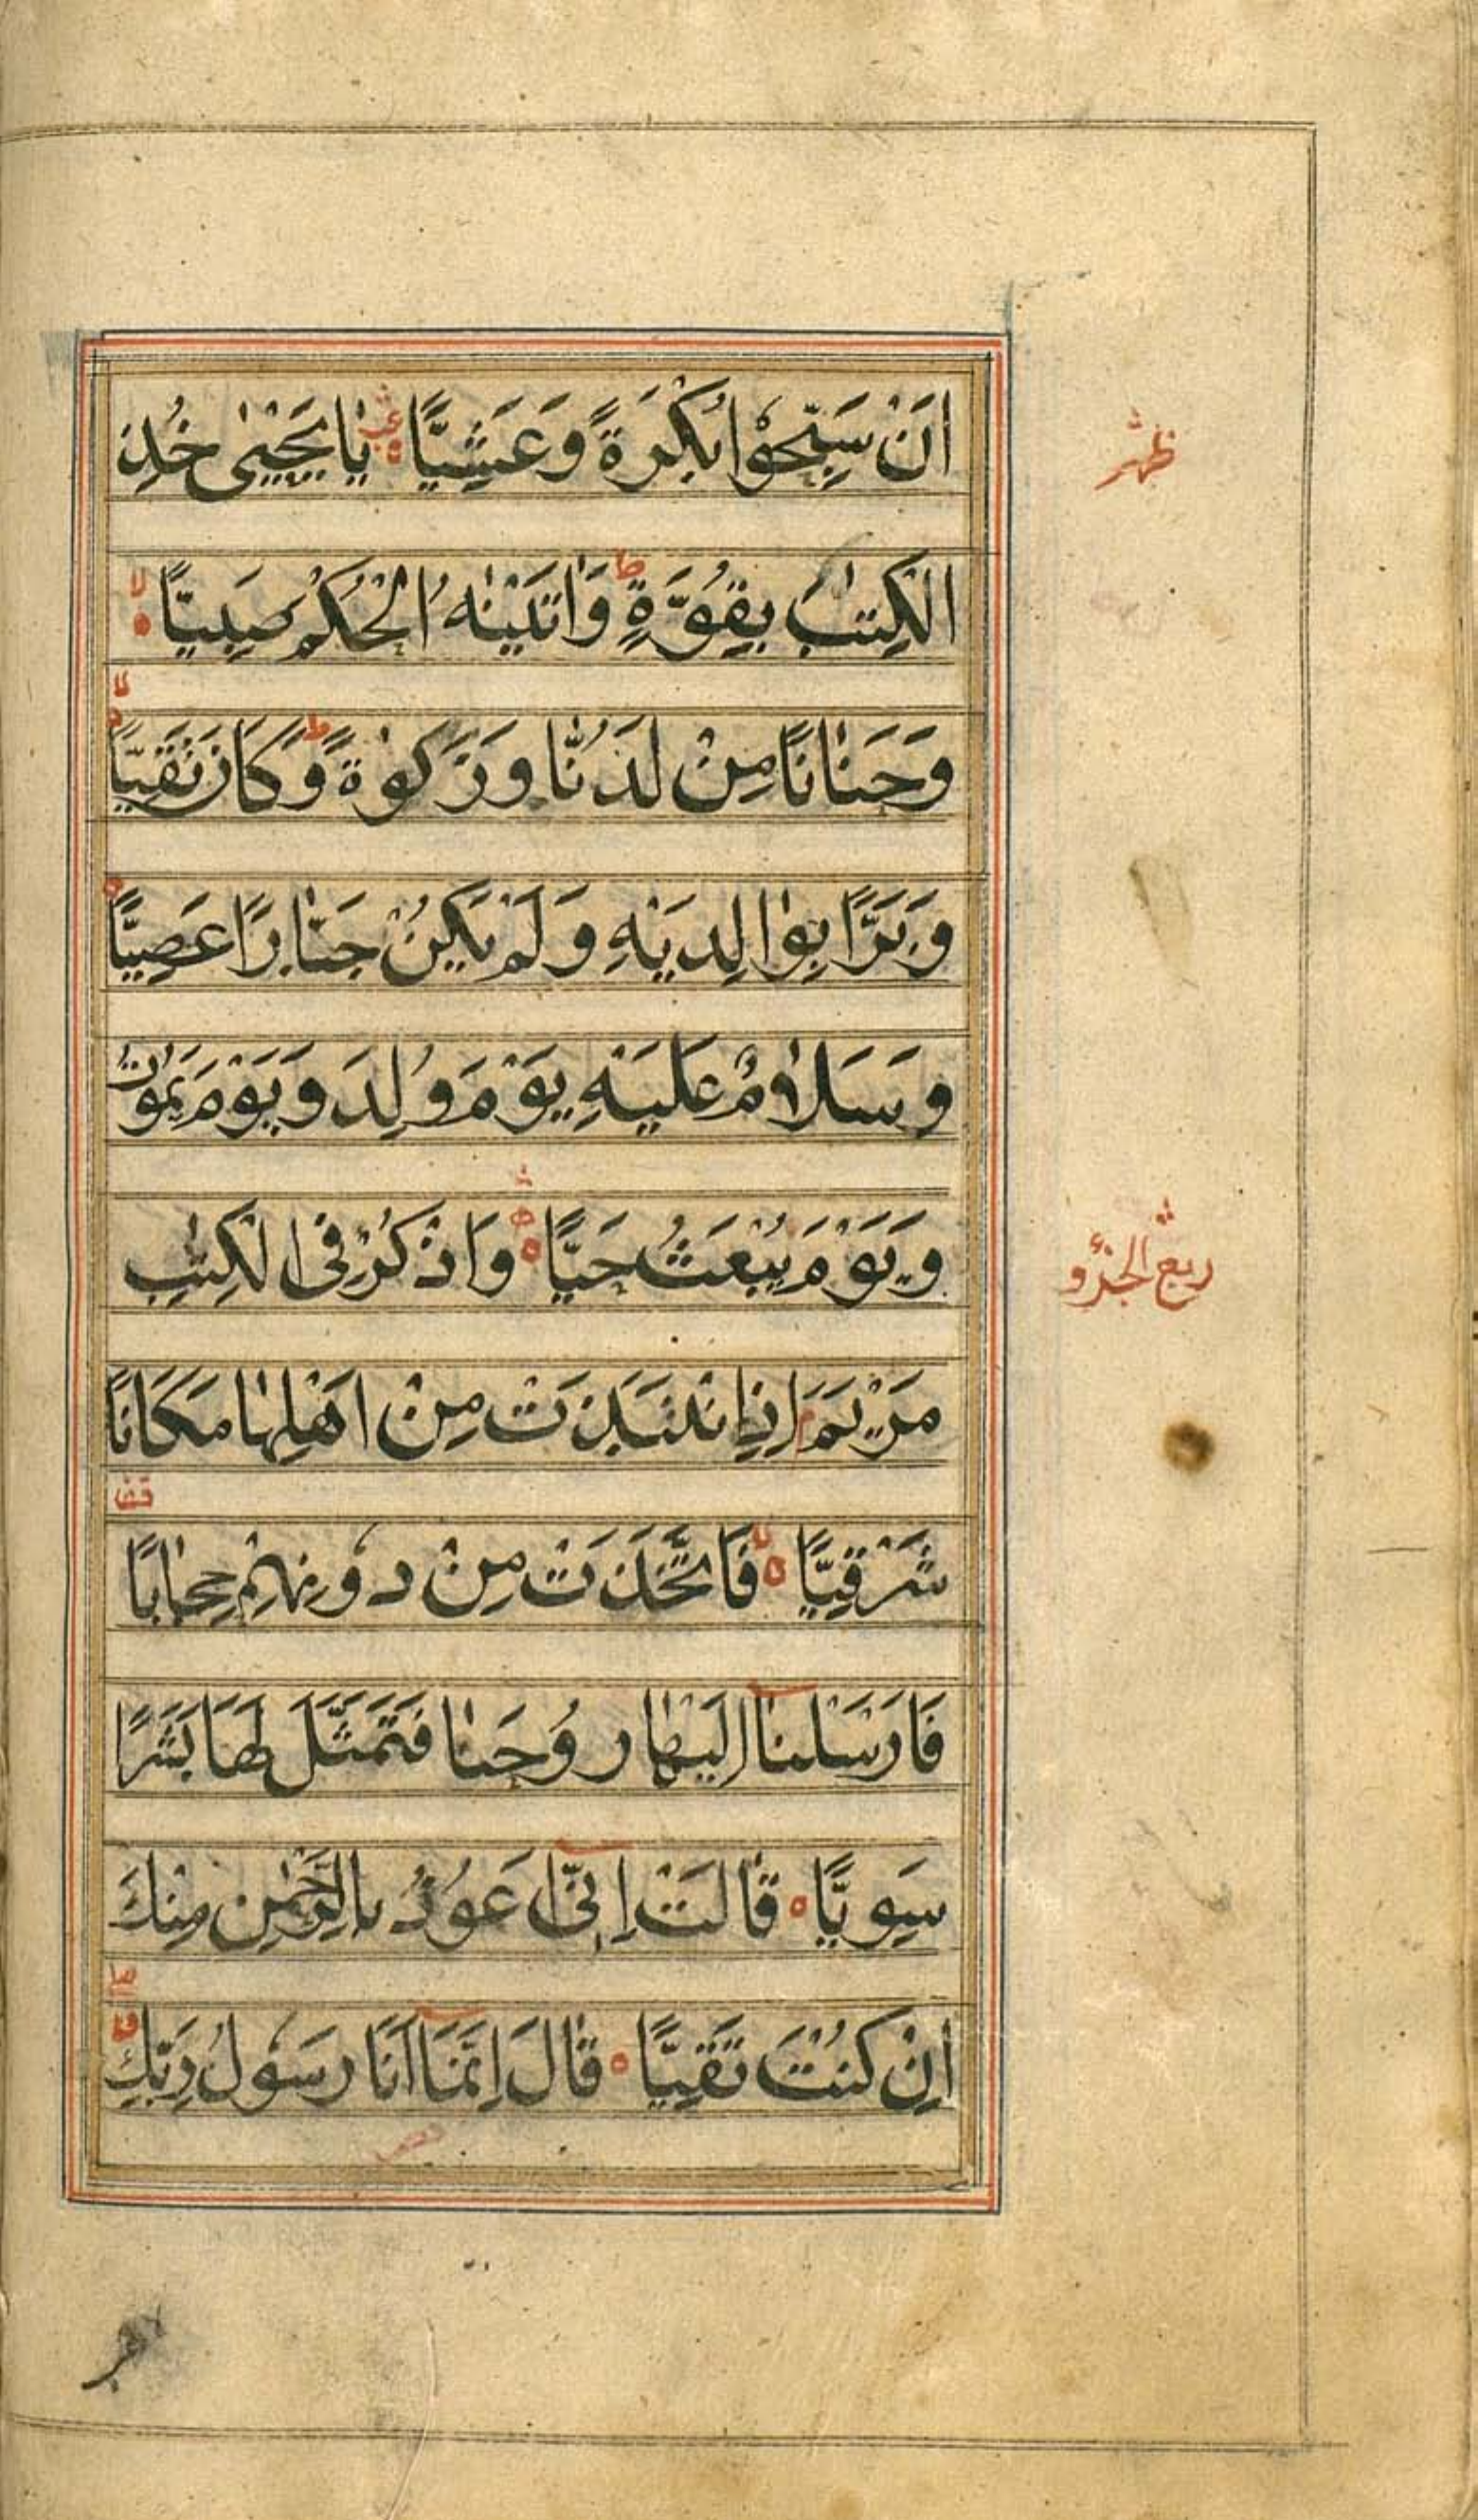 اَنْ سَبِّحُوْا بُكْرَةً وَعَشِيًّا يَا يَحْيٰى خُذِ
ظهر
الْكِتٰبَ بِقُوَّةٍ ط وَاٰتَيْنٰهُ الْحُكْمَ صَبِيًّا لا
وَحَنَانًا مِنْ لَدُنَّا وَزَكٰوةً ط وَكَانَ تَقِيًّا لا
وَبَرًّا بِوَالِدَيْهِ وَلَمْ يَكُنْ جَبَّارًا عَصِيًّا
وَسَلَامٌ عَلَيْهِ يَوْمَ وُلِدَ وَيَوْمَ يَمُوْتُ
وَيَوْمَ يُبْعَثُ حَيًّا وَاذْكُرْ فِى الْكِتٰبِ
ربع الجزو
مَرْيَمَ اِذِ انْتَبَذَتْ مِنْ اَهْلِهَا مَكَانًا
شَرْقِيًّا لا فَاتَّخَذَتْ مِنْ دُوْنِهِمْ حِجَابًا
قف
فَاَرْسَلْنَا اِلَيْهَا رُوْحَنَا فَتَمَثَّلَ لَهَا بَشَرًا
سَوِيًّا قَالَتْ اِنِّى اَعُوْذُ بِالرَّحْمٰنِ مِنْكَ
اِنْ كُنْتَ تَقِيًّا قَالَ اِنَّمَا اَنَا رَسُوْلُ رَبِّكِ